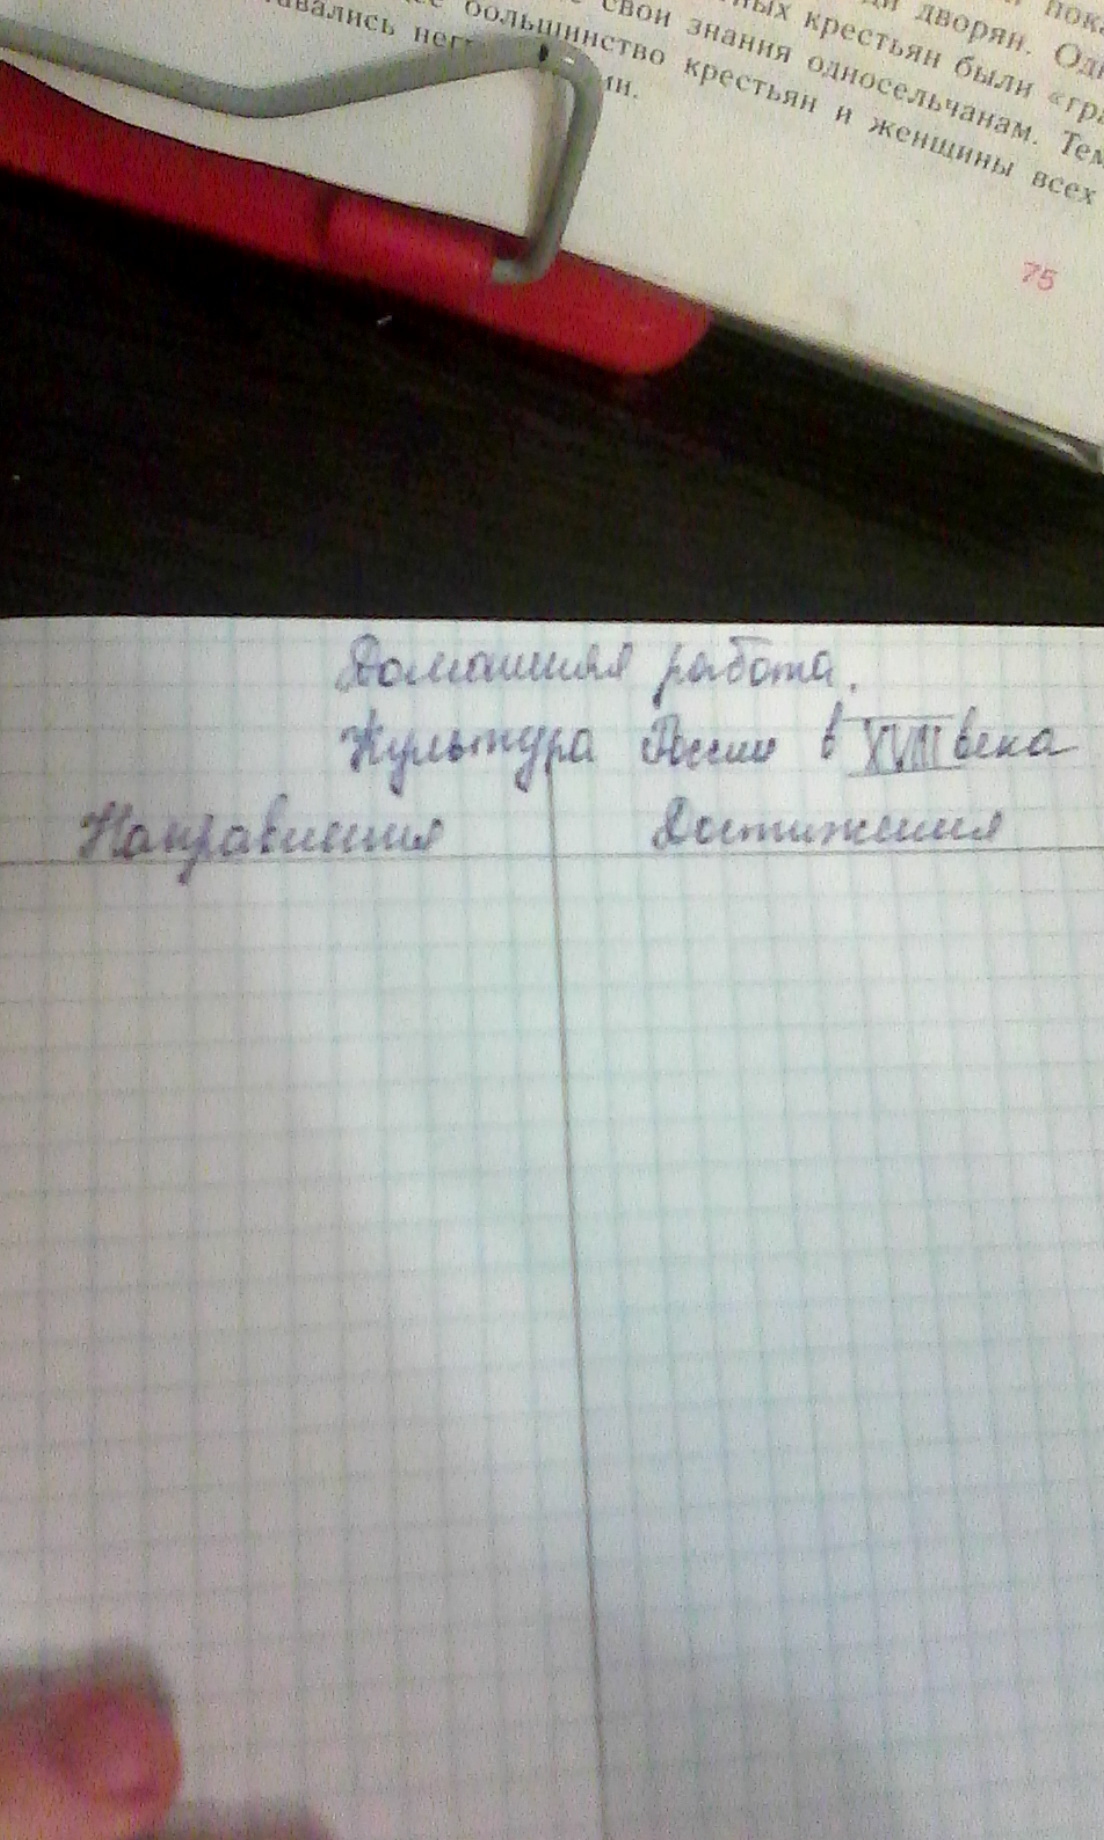 ди дворян. Одн
ных крестьян были «гра
свои знания односельчанам. Тем
большинство крестьян и женщины всех
тавались
75
Домашняя работа.
Культура России в XVIII века
Направления Достижения